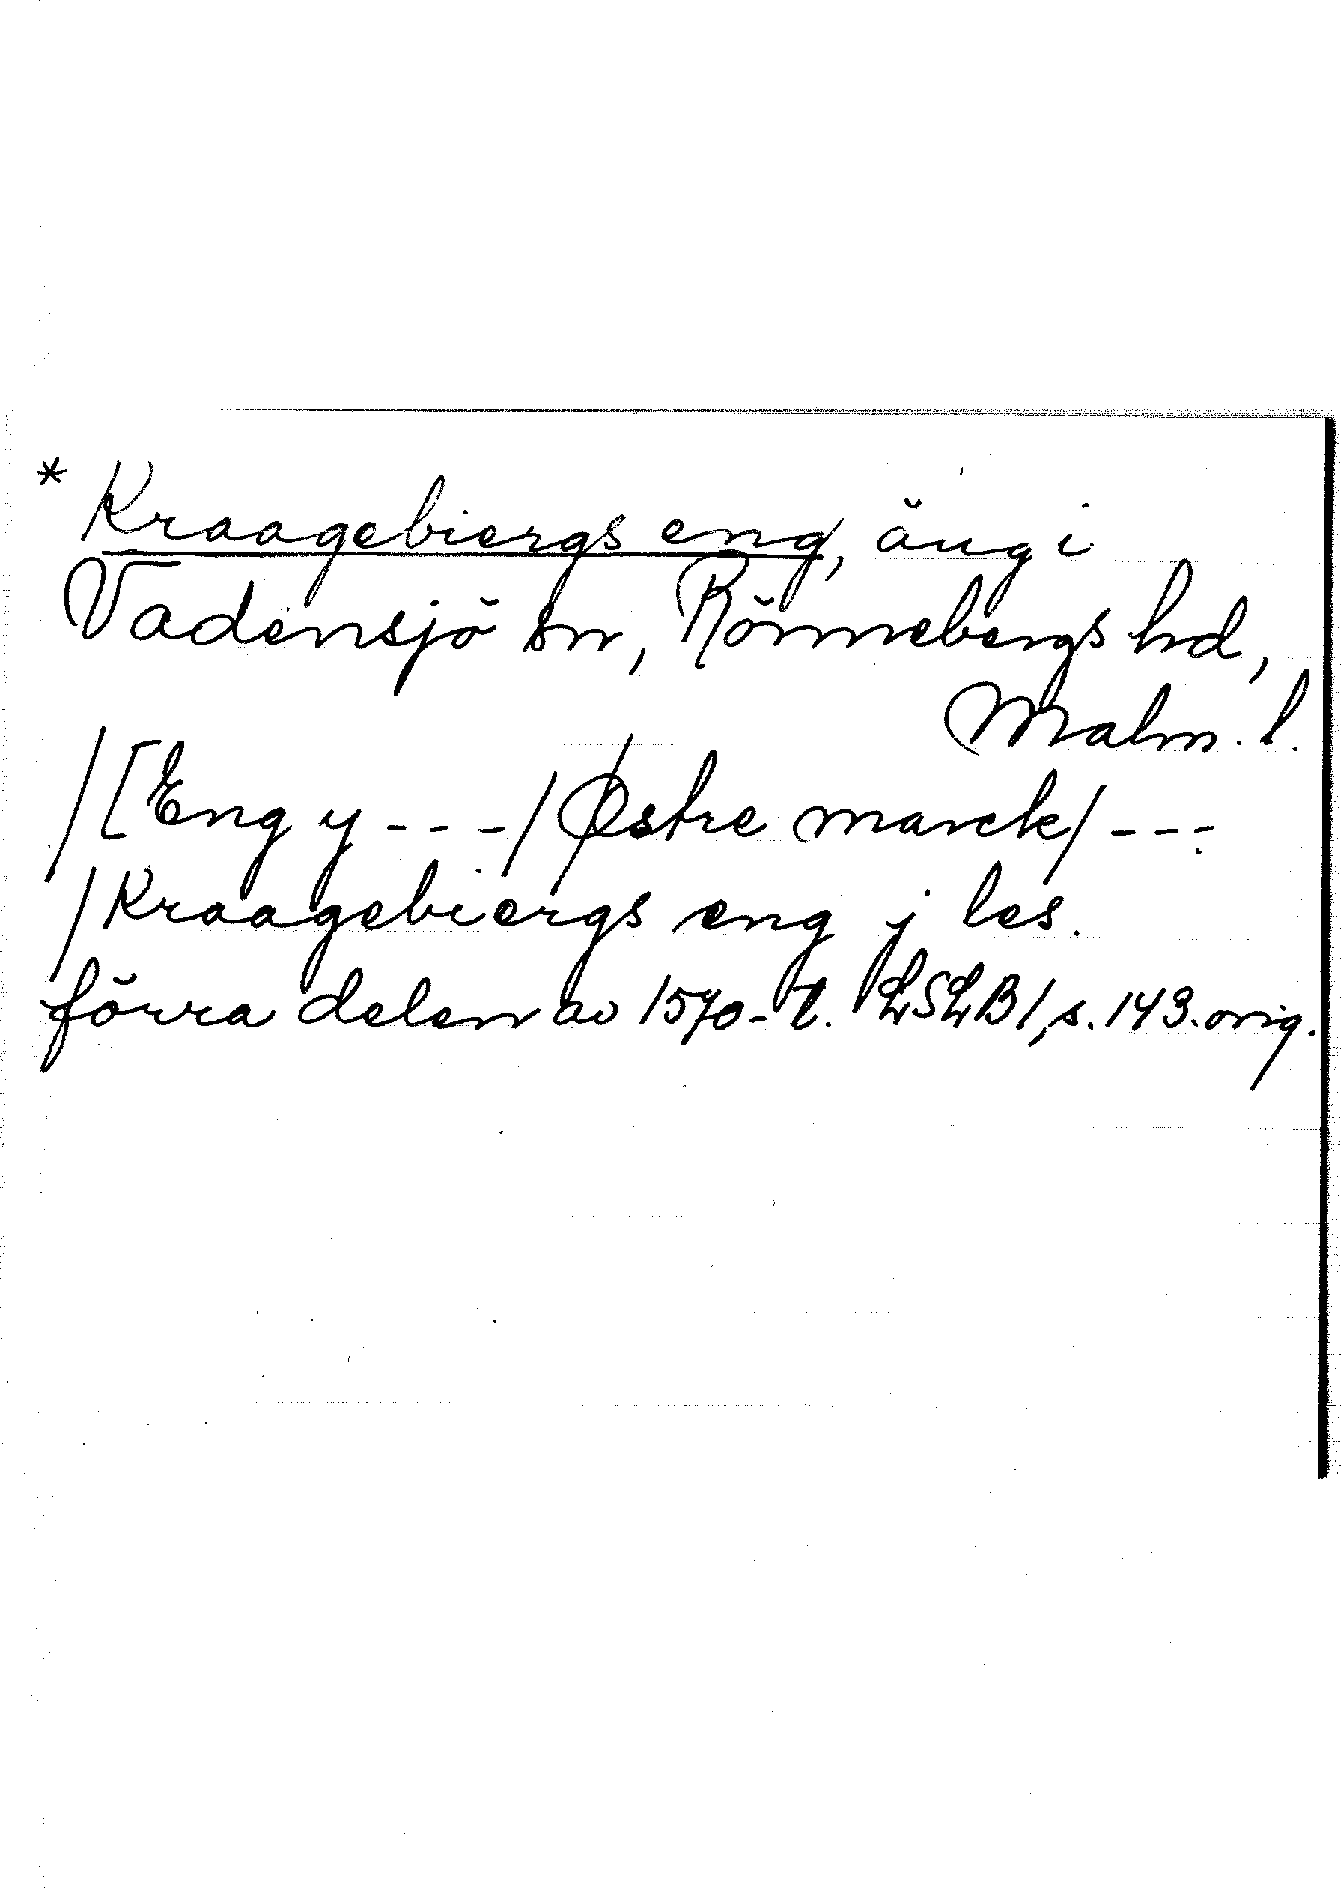 * Kraagebiergs eng, äng i
Vadensjö sn, Rönnebergs hd,
Malm. l.
/[Eng y - - -/Østre marck/ - - -
/Kraagebiergs eng j les.
förra delen av 1570-t. LSLB1, s. 143. orig.